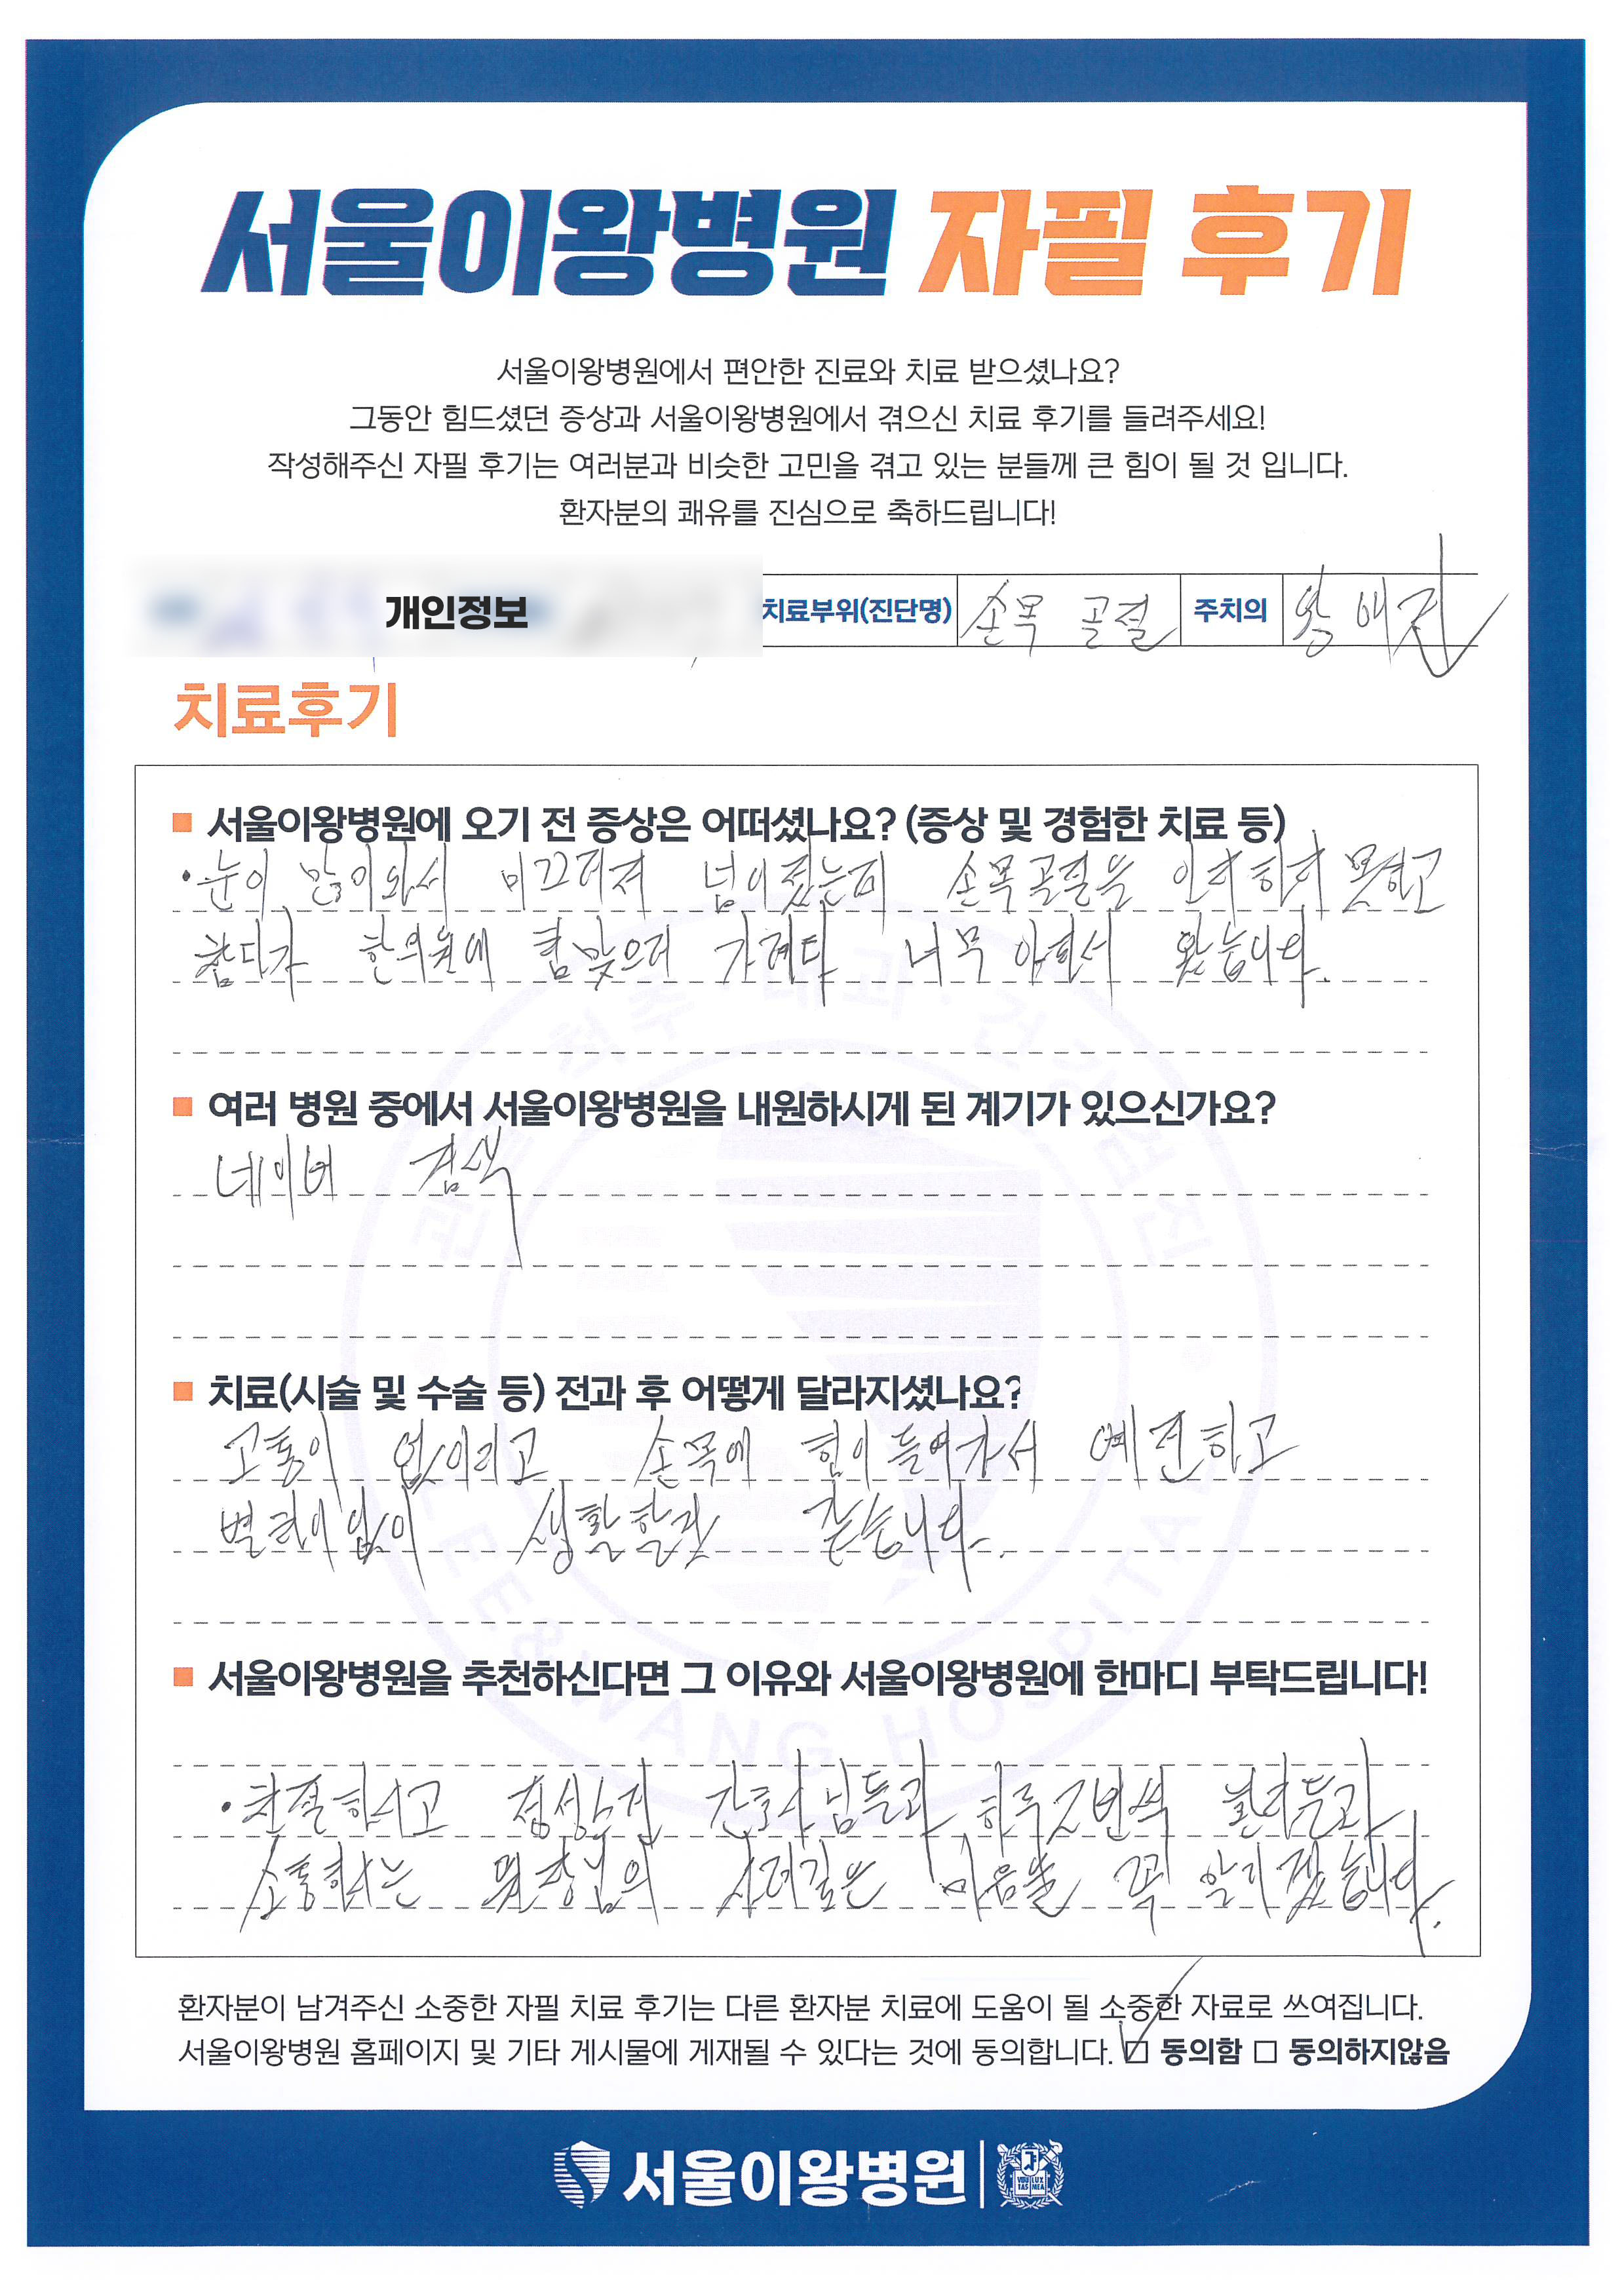 서울이왕병원 자필 후기
서울이왕병원에서 편안한 진료와 치료 받으셨나요?
그동안 힘드셨던 증상과 서울이왕병원에서 겪으신 치료 후기를 들려주세요!
작성해주신 자필 후기는 여러분과 비슷한 고민을 겪고 있는 분들께 큰 힘이 될 것 입니다.
환자분의 쾌유를 진심으로 축하드립니다!
개인정보 치료부위(진단명) 손목 골절 주치의 왕
치료후기
서울이왕병원에 오기 전 증상은 어떠셨나요? (증상 및 경험한 치료 등)
눈이 많이와서 미끄러져 넘어졌는데 손목골절을 못하고
참다가 한의원에 침맞으러 너무 아파서 왔습니다.
여러 병원 중에서 서울이왕병원을 내원하시게 된 계기가 있으신가요?
네이버 검색
치료(시술 및 수술 등) 전과 후 어떻게 달라지셨나요?
고통이 손목에 힘이 들어가서
생활할것 같습니다.
서울이왕병원을 추천하신다면 그 이유와 서울이왕병원에 한마디 부탁드립니다!
친절하시고 간호사님들과 하루 2번씩 환자들과
소통하시는 원장님의 사려깊은 마음을 꼭 알리겠습니다.
환자분이 남겨주신 소중한 자필 치료 후기는 다른 환자분 치료에 도움이 될 소중한 자료로 쓰여집니다.
서울이왕병원 홈페이지 및 기타 게시물에 게재될 수 있다는 것에 동의합니다. ☑ 동의함 □ 동의하지않음
서울이왕병원
LEE&WANG HOSPITAL